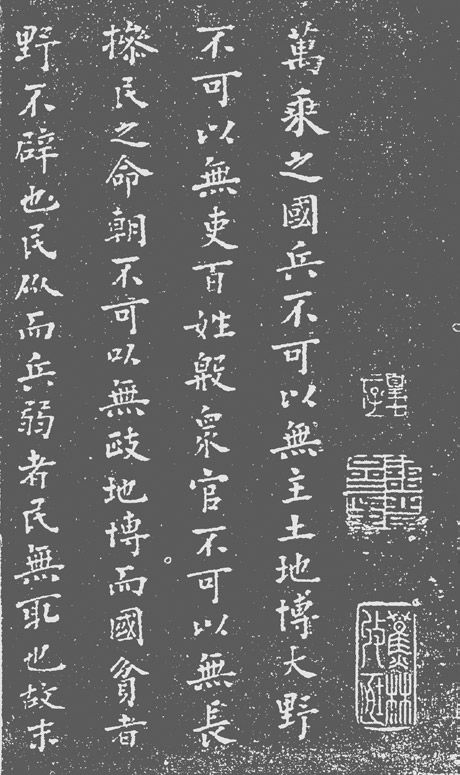 萬乘之國兵不可以無主土地博大野
不可以無吏百姓殷衆官不可以無長
操民之命朝不可以無政地博而國貧者
野不辟也民众而兵弱者民無取也故末